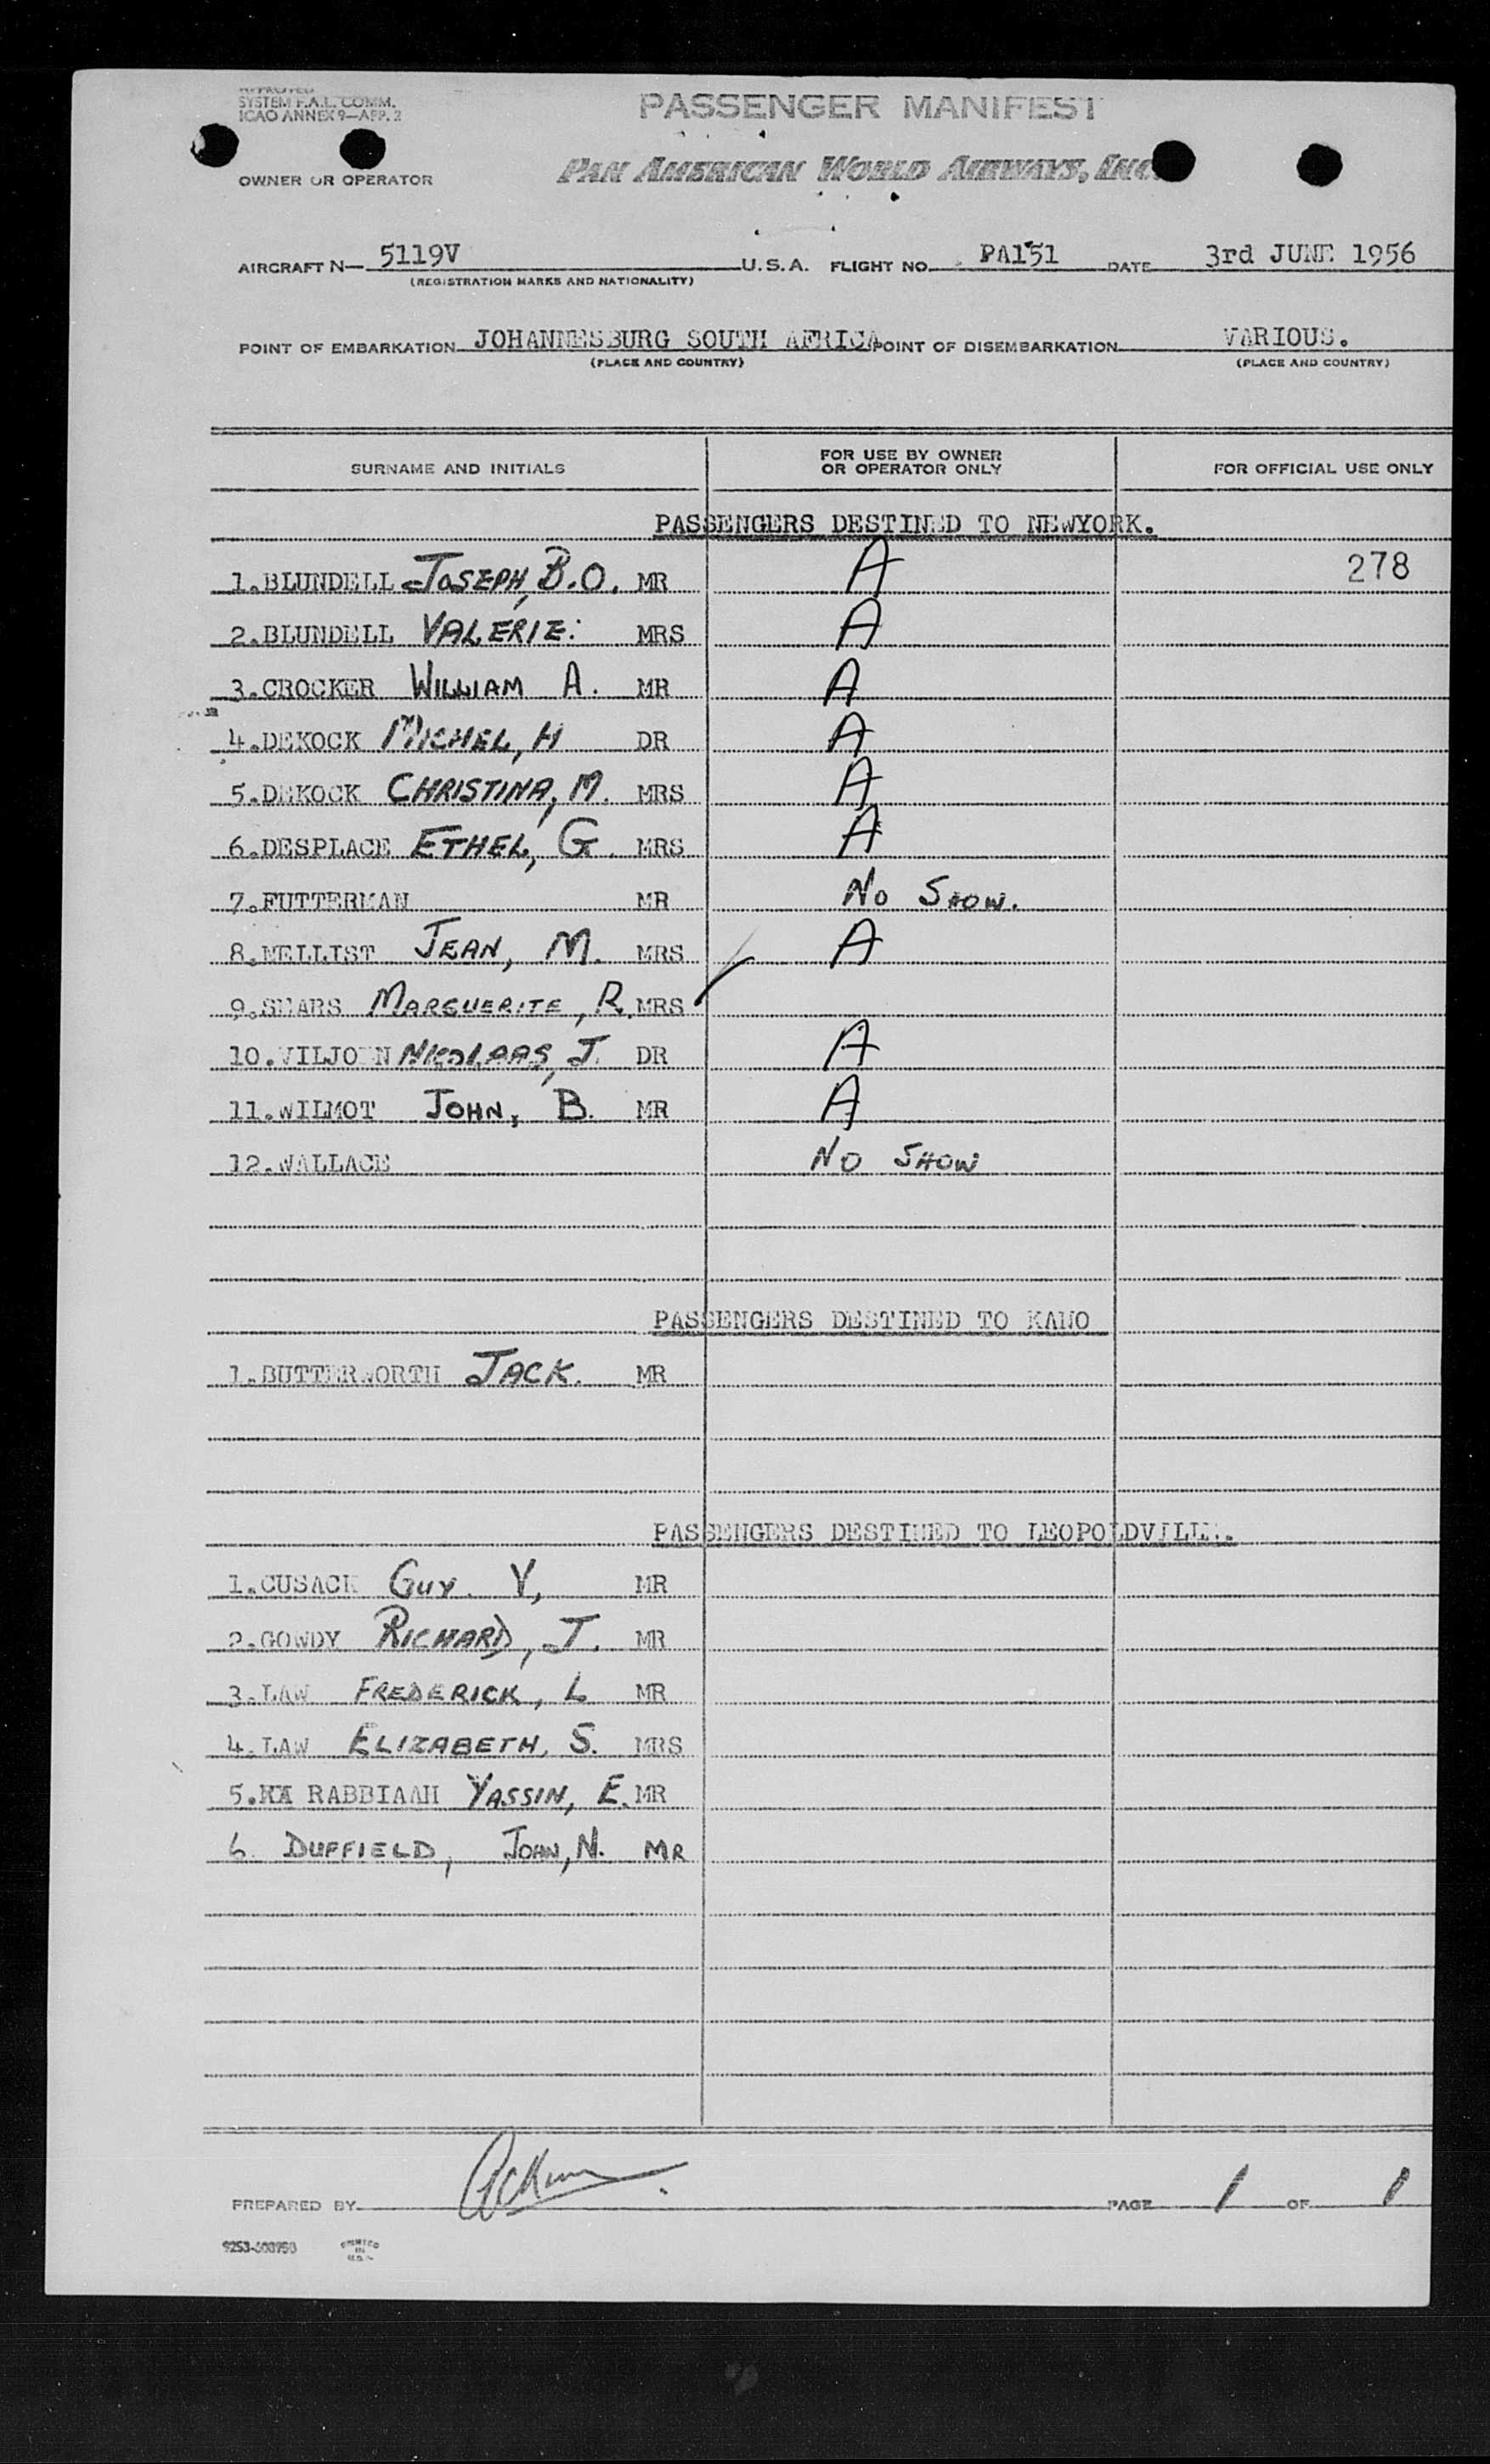 APPROVED
SYSTEM F.A.L. COMM.
ICAO ANNEX 9—APP. 2
PASSENGER MANIFEST
OWNER OR OPERATOR PAN AMERICAN WORLD AIRWAYS, INC.
AIRCRAFT N— 5119V U.S.A. FLIGHT NO. PA151 DATE 3rd JUNE 1956
(REGISTRATION MARKS AND NATIONALITY)
POINT OF EMBARKATION JOHANNESBURG SOUTH AFRICA POINT OF DISEMBARKATION VARIOUS.
(PLACE AND COUNTRY) (PLACE AND COUNTRY)
SURNAME AND INITIALS FOR USE BY OWNER OR OPERATOR ONLY FOR OFFICIAL USE ONLY
PASSENGERS DESTINED TO NEWYORK.
1.BLUNDELL JOSEPH, B.O. MR A 278
2.BLUNDELL VALERIE: MRS A
3.CROCKER WILLIAM A. MR A
4.DEKOCK MICHEL, H DR A
5.DEKOCK CHRISTINA, M. MRS A
6.DESPLACE ETHEL, G. MRS A
7.FUTTERMAN MR NO SHOW.
8.MELLIST JEAN, M. MRS A
9.SEARS MARGUERITE, R. MRS
10.VILJOEN NICOLAAS, J. DR A
11.WILMOT JOHN, B. MR A
12.WALLACE NO SHOW
PASSENGERS DESTINED TO KANO
1.BUTTERWORTH JACK. MR
PASSENGERS DESTINED TO LEOPOLDVILLE.
1.CUSACK GUY. V, MR
2.GOWDY RICHARD, J. MR
3.LAW FREDERICK, L MR
4.LAW ELIZABETH, S. MRS
5. RABBIAAH YASSIN, E. MR
6. DUFFIELD, JOHN, N. MR
PREPARED BY PAGE 1 OF 1
PRINTED
IN
U.S.A.